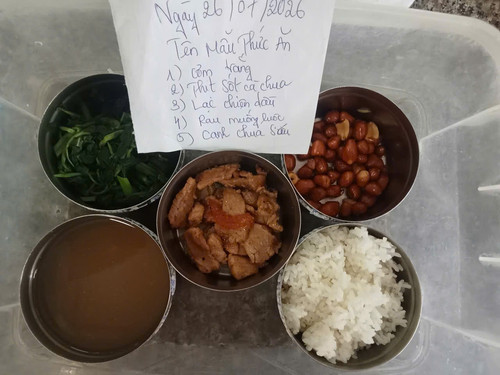 Ngày 26/07/2026
Tên Mẫu Thức Ăn
1) cơm trắng
2) Thịt sốt cà chua
3) Lạc chiên dầu
4) Rau muống luộc
5) Canh chua sấu